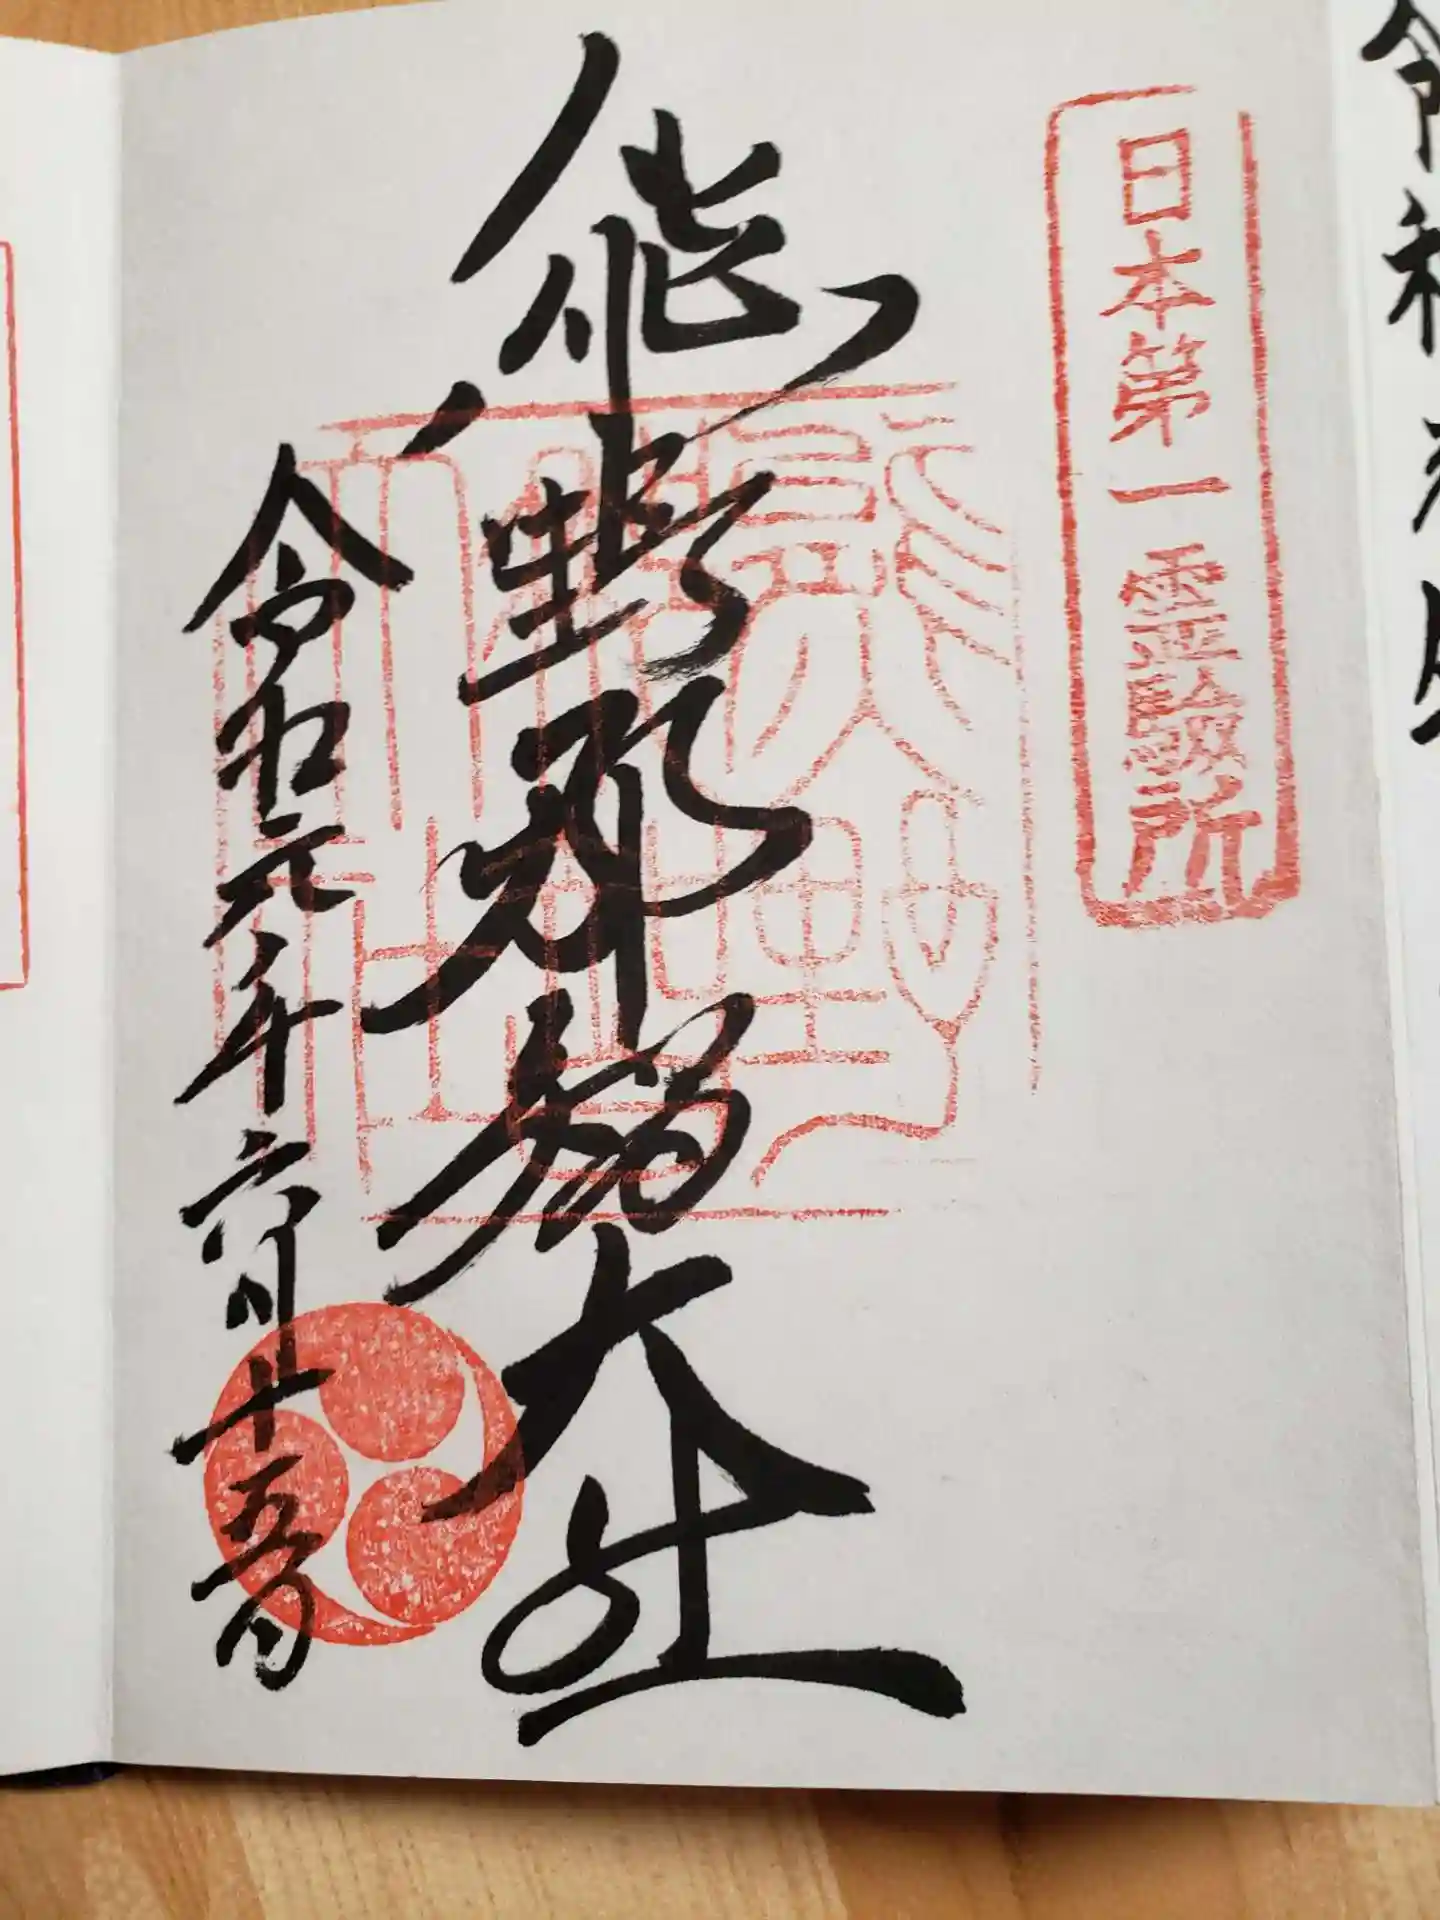 日本第一霊験所
熊野那智大社
令和元年六月十五日
令和